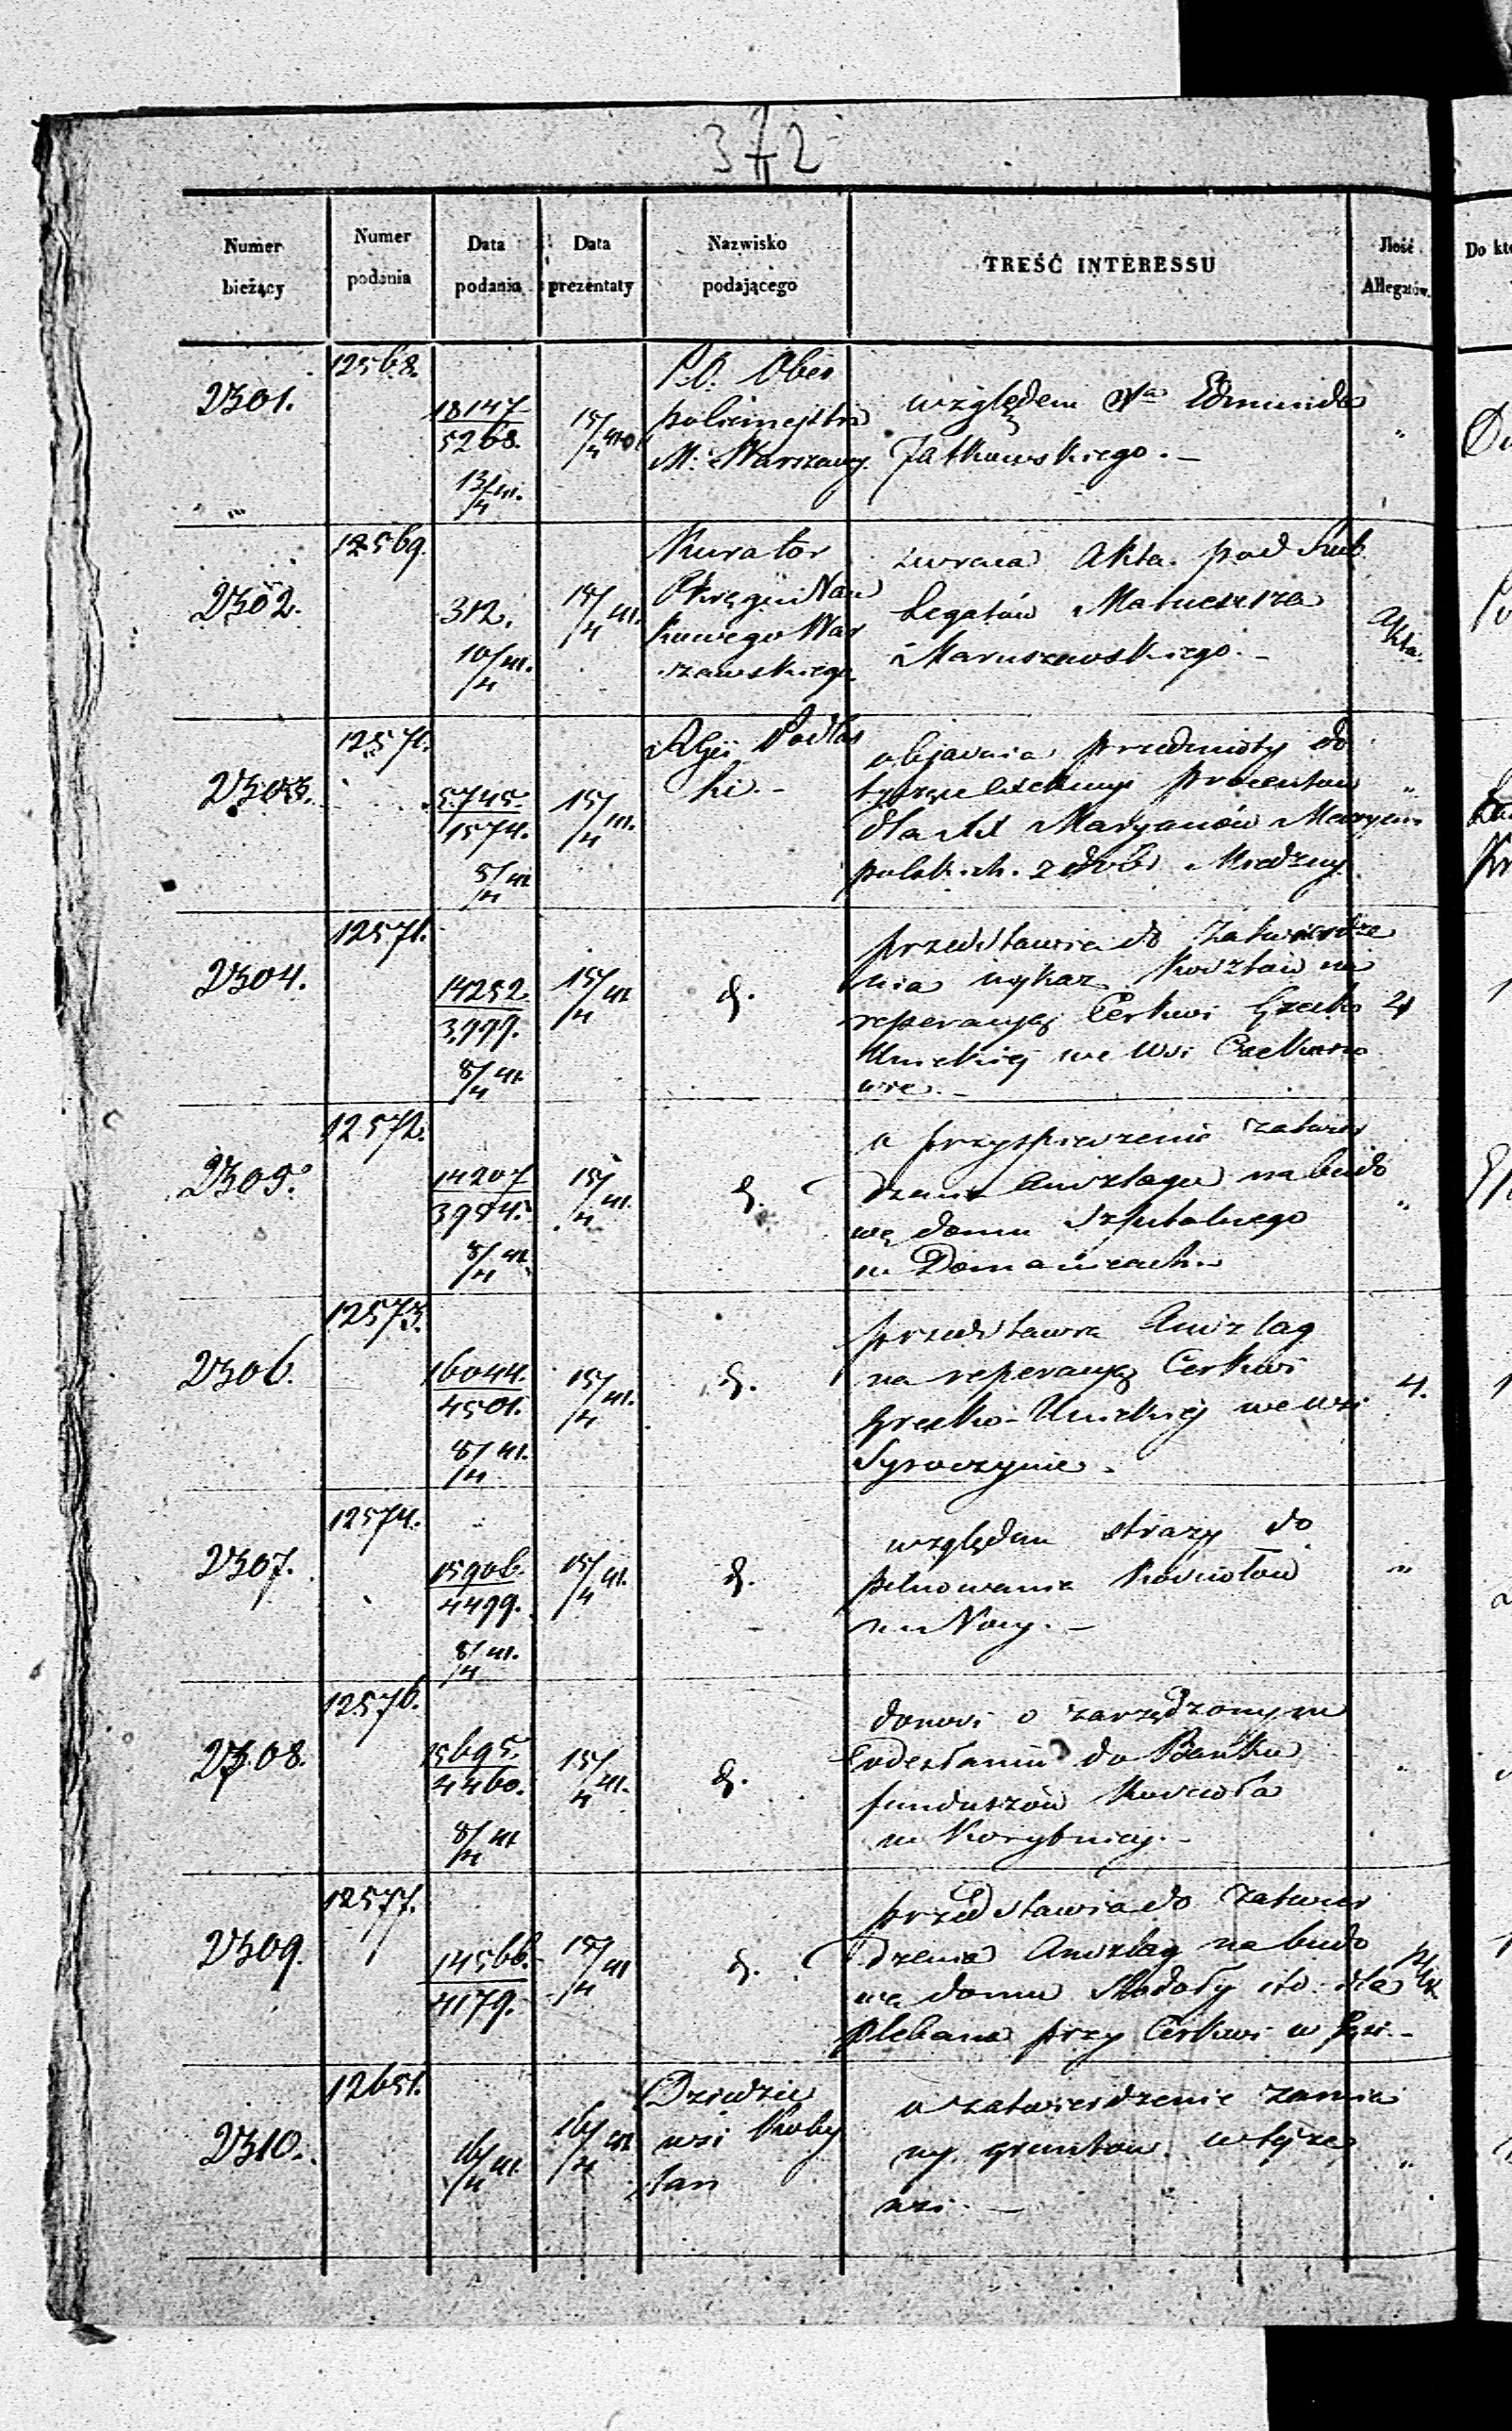 372
Numer bieżący
Numer podania
Data podania
Data prezentaty
Nazwisko podającego
TREŚĆ INTERESSU
Ilość Allegatów.
Do
12568.
2301.
18147
5268.
13/4
15/4
P.O. Ober
policmejstra
M. Warszawy
względem Edmunda
Jatkowskiego. —
"
12569.
2302.
312.
10/4
15/4
Kurator
Okręgu Nau
kowego War
szawskiego.
zwraca Akta pod
Legatów Mateusza
Maruszewskiego. —
Akta.
12571.
2303.
5745.
1574.
5/4
15/4
Podlas
ki. —
objaśnia przedmioty do
tyczące procentów
dla Maryanów Maryam
polskich z dóbr Miedzny
"
12571.
2304.
14252
3999.
8/4
15/4
d.
przedstawia do zatwierdze
nia wykaz kosztów na
reperacyą Cerkwi Grecko
Unickiej we Wsi
wie. —
12572.
2305.
14207
8/4
15/4
d.
o przyspieszenie zatwier
dzenia Anszlagu na budo
wę domu Szpitalnego
w Domanicach
"
12573.
2306.
16044.
4501.
8/4
15/4
d.
przedstawia Anszlag
na reperacyą Cerkwi
Grecko-Unickiej we wsi
Syroczynie.
4.
12574.
2307.
15906.
4499.
8/4
15/4
d.
względem straży do
pilnowania Kościołów
w Nocy. —
"
12576.
2308.
15695.
4460.
8/4
15/4
d.
donosi o zarządzonym
odesłaniu do Banku
funduszów Kościoła
w Korytnicy. —
"
12577.
2309.
14566.
4179.
15/4
d.
przedstawia do zatwier
dzenia Anszlag na budo
wę domu Stodoły ito. dla
Plebana przy Cerkwi w
12651.
2310.
16/4
16/4
Dziedzic
wsi Koby
lan
o zatwierdzenie zamia
ny gruntów w tejże
wsi. —
"